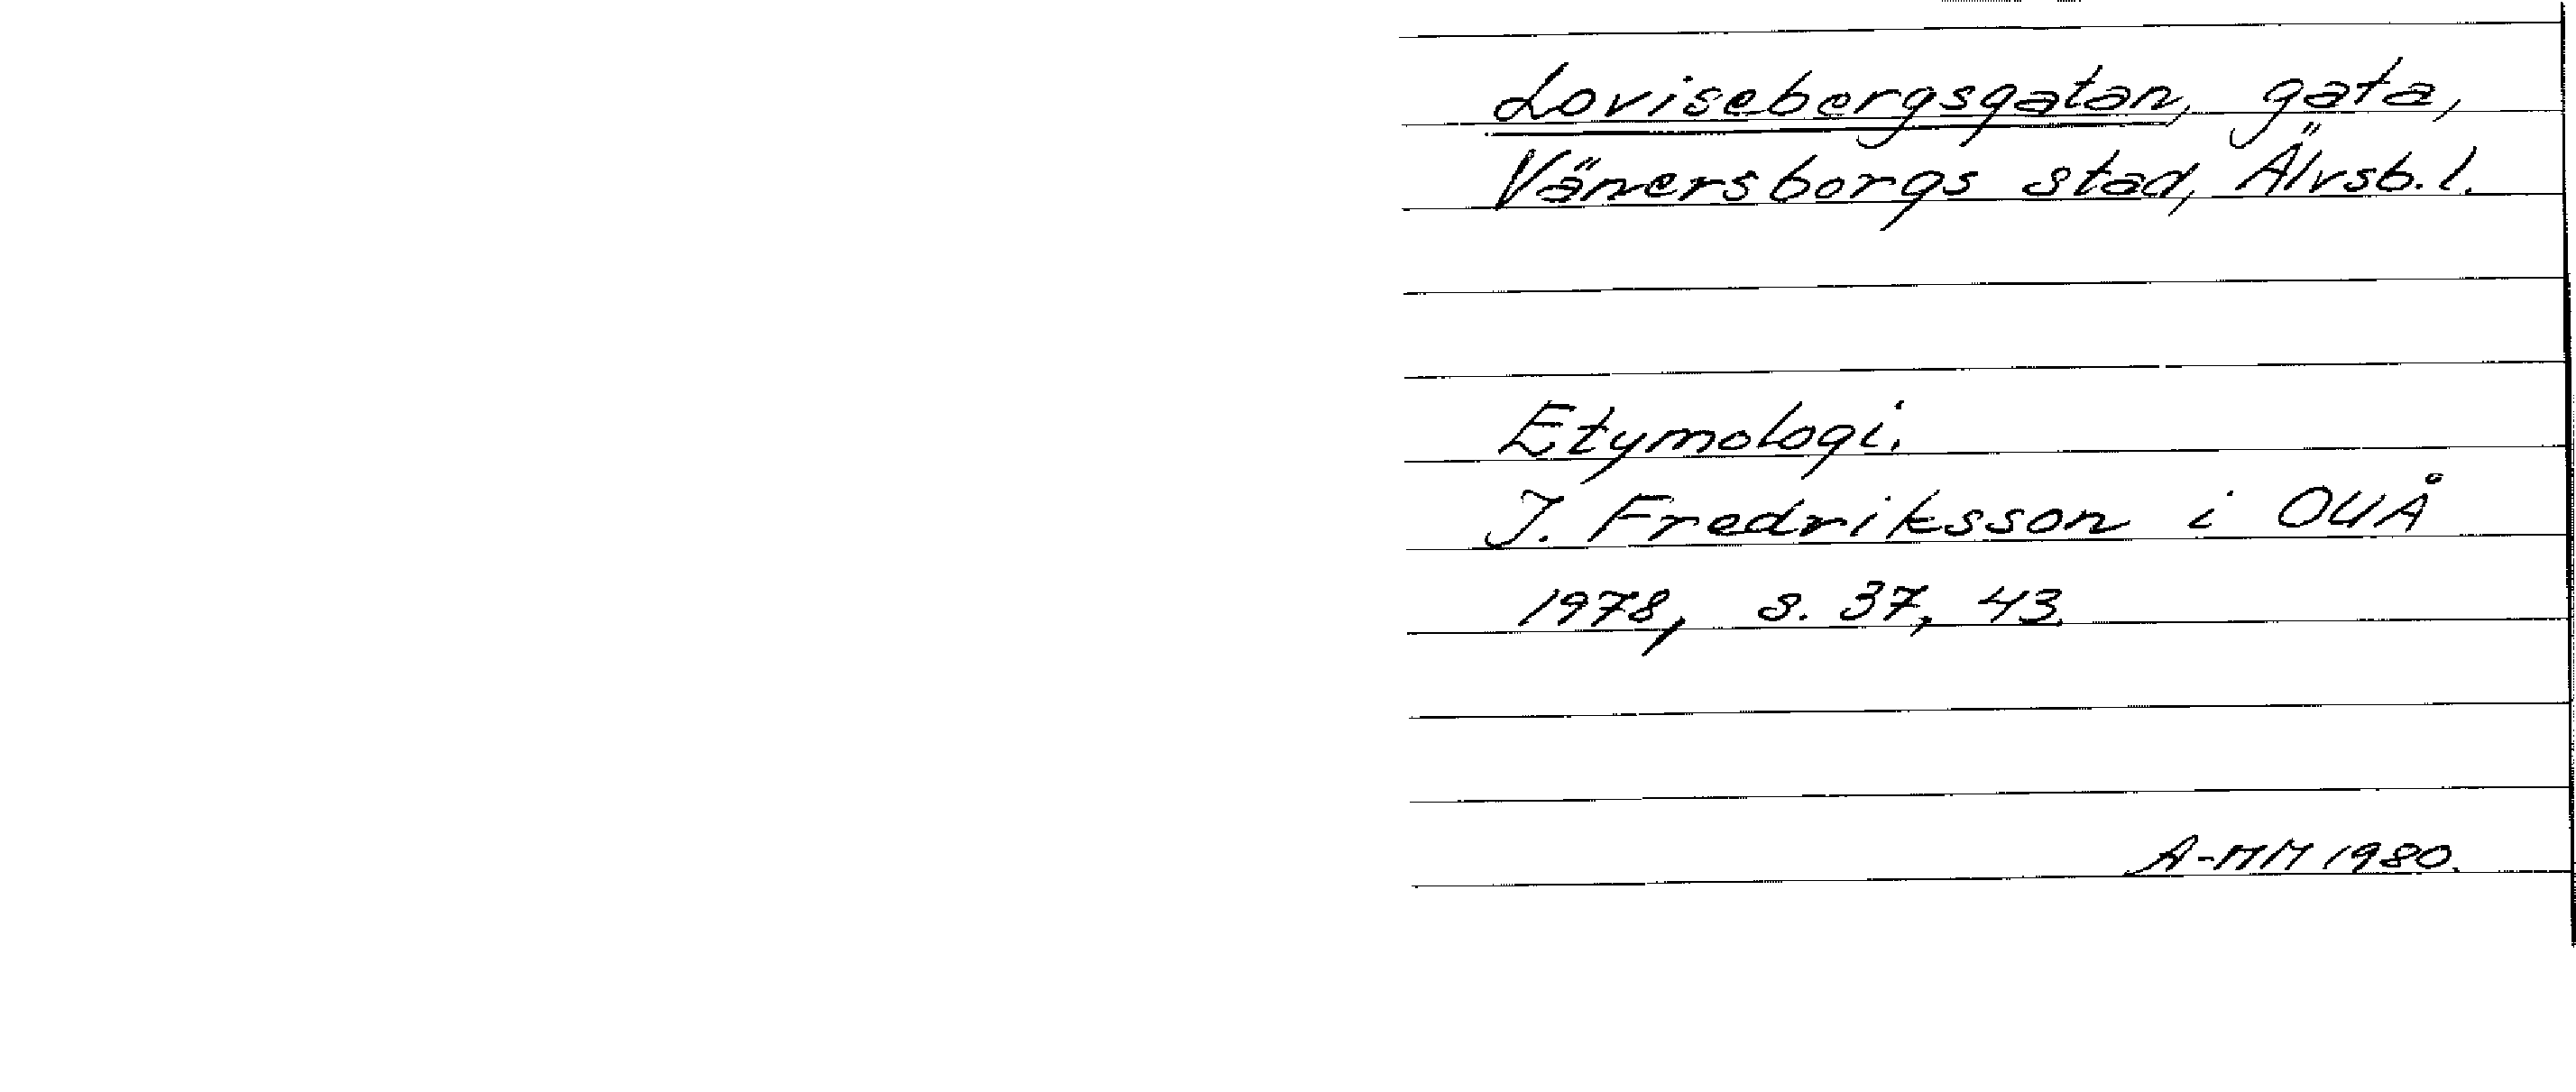 Lovisebergsgatan, gata,
Vänersborgs stad, Älvsb. l.
Etymologi.
I. Fredriksson i OUÅ
1978, s. 37, 43.
A-MM 1980.